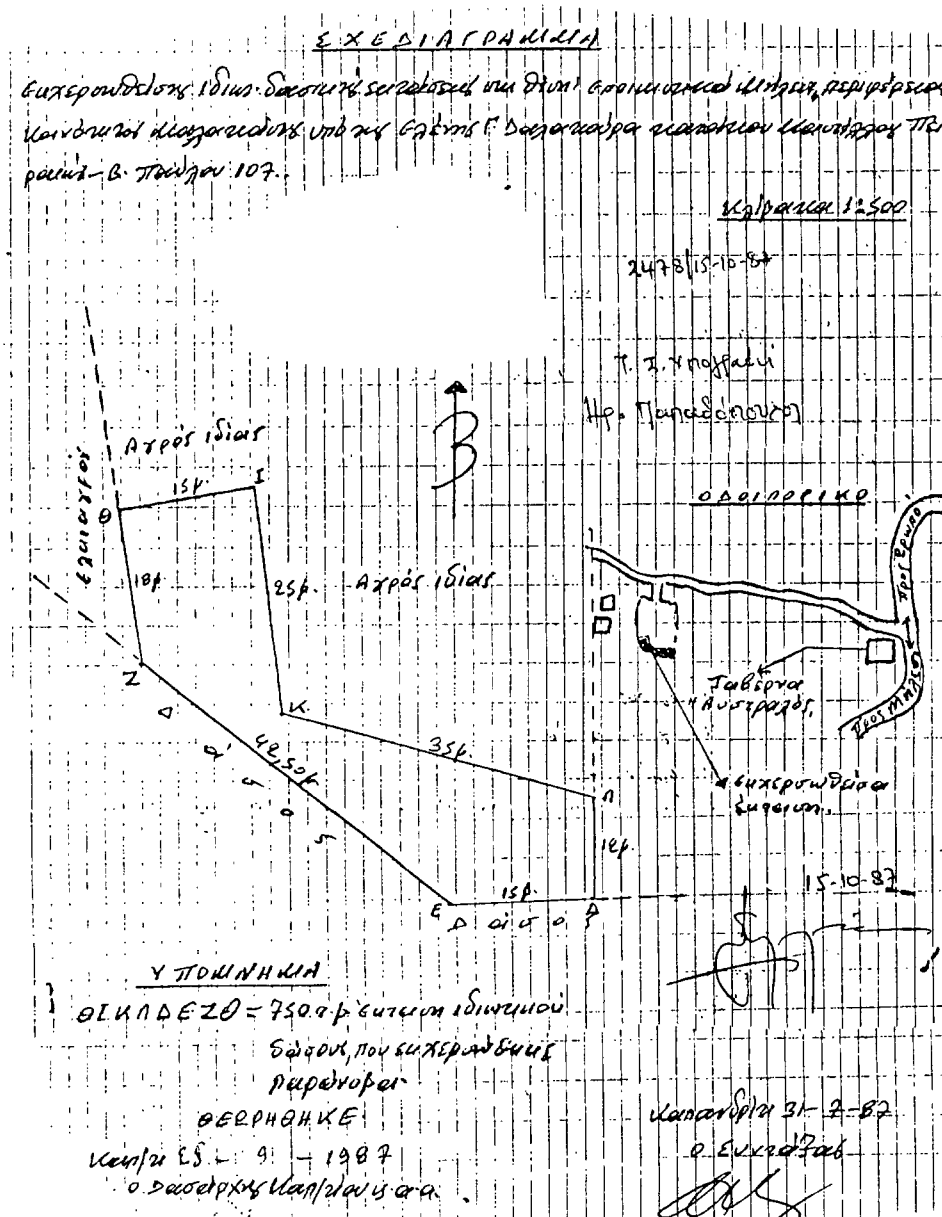 ΣΧΕΔΙΑΓΡΑΜΜΑ
Εκχερσωθείσης ιδιωτ. δασικής εκτάσεως στη θέση περιφέρειας
Κοινότητος Μαλακάσης υπό της Ελένης Γ. κατοίκου
ραιώς-Β. Παύλου 107.
Κλίμακα 1:500
2478/15-10-87
Τ.Σ. Υπογραφή
Ηρ. Παπαδόπουλος
Β
Αγρός ιδίας
15μ.
Θ
Ι
Ελαιαγρός
18μ.
25μ.
Αγρός ιδίας
Ζ
Κ.
42,50μ
35μ.
Λ
12μ.
15μ.
Ε
Δ
Δάσος
Δάσος
ΟΔΟΙΠΟΡΙΚΟ
Προς Ωρωπό
Προς
Ταβέρνα
"Αυστραλός"
εκχερσωθείσα
έκταση.
15-10-87
ΥΠΟΜΝΗΜΑ
ΘΙΚΛΔΕΖΘ = 750 τ.μ έκταση ιδιωτικού
δάσους, που εκχερσώθηκε
παράνομα
ΘΕΩΡΗΘΗΚΕ
Καπ/τι - 9 - 1987
ο Δασάρχης Καπ/τίου κ.α.α.
Καπανδρίτι 31-7-87
Ο Συντάξας